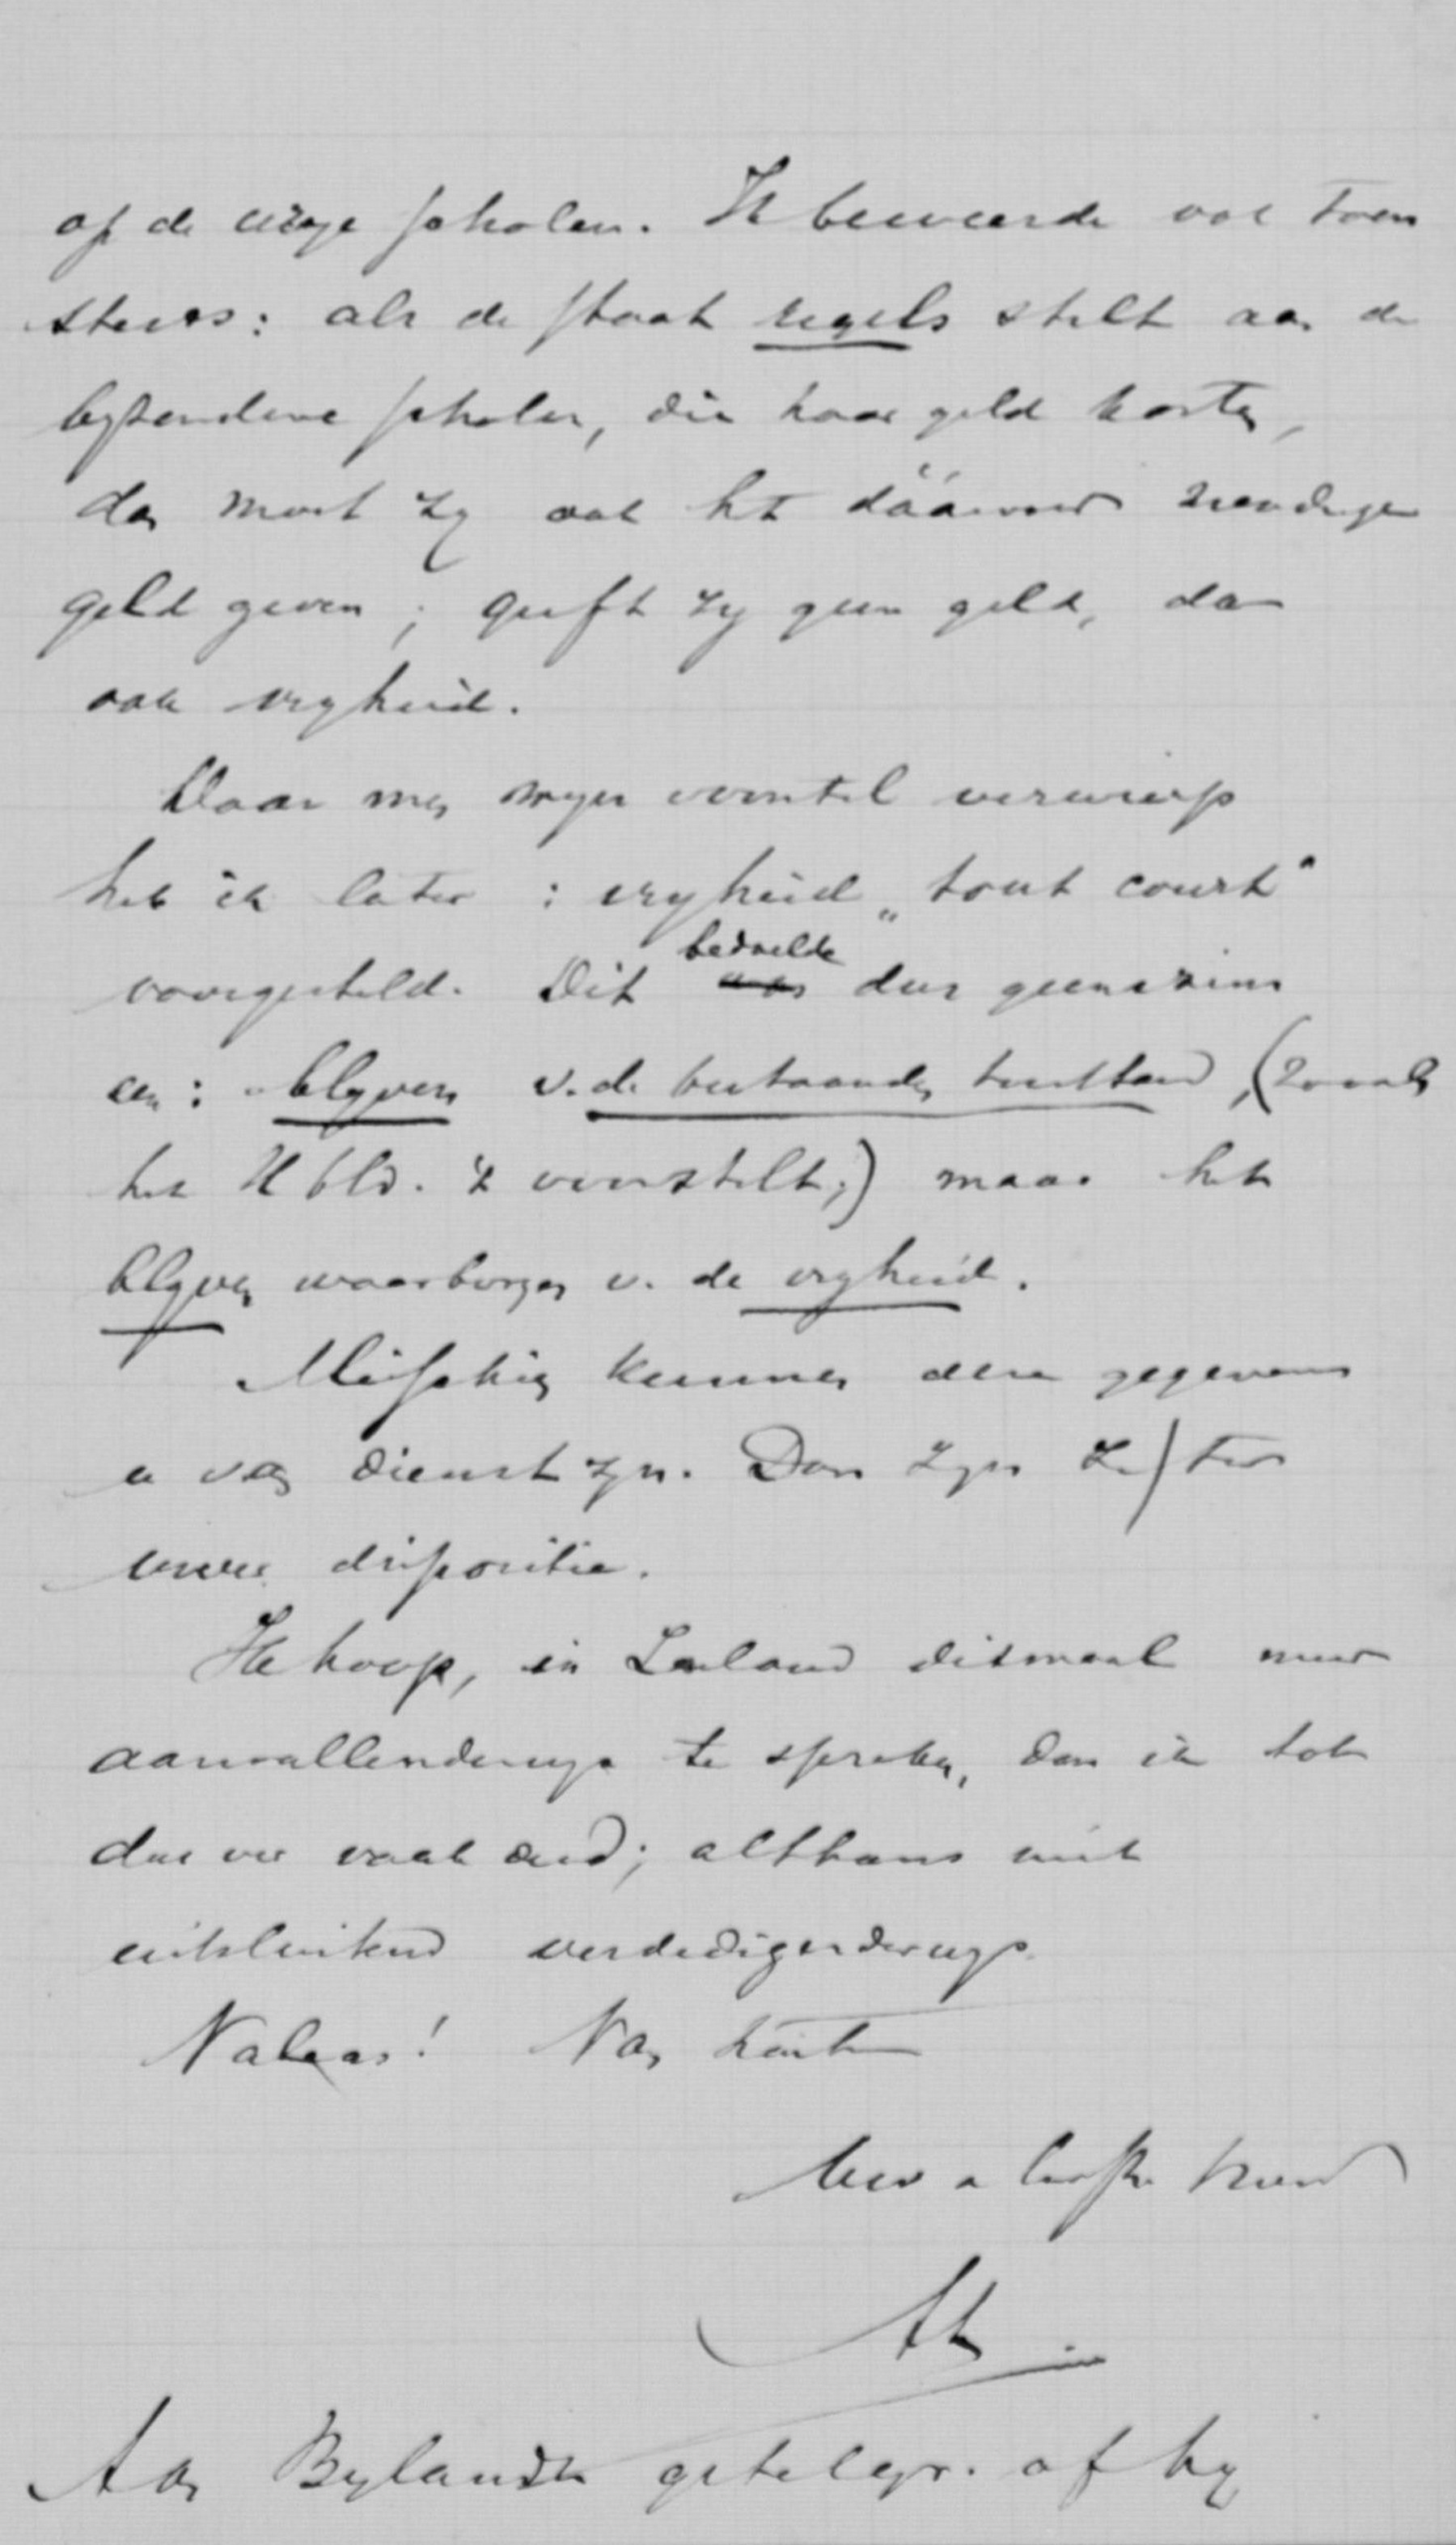 op de vrije scholen. Ik beweerde ook toen
steeds: als de staat regels stelt aan de
byzondere scholen, die haar geld kosten,
dan moet zy ook het dáárvoor noodige
geld geven; geeft zy geen geld, dan
ook vryheid.
Daar men myn voorstel verwierp
heb ik later : vryheid „tout court"
voorgesteld. Dit bedoelde dus geenszins
een: blyven v. de bestaanden toestand, (zooals
het Hbld. 't voorstelt;) maar het
blyven waarborgen v. de vryheid.
Misschien kunnen deze gegevens
u van dienst zyn. Dan zyn ze ter
uwer dispositie.
Ik hoop, in Zeeland ditmaal meer
aanvallenderwys te spreken, dan ik tot
dusver vaak deed; althans niet
uitsluitend verdedigenderwys.
Van harte
Uw
Aan Bylandt getelegr. of hy